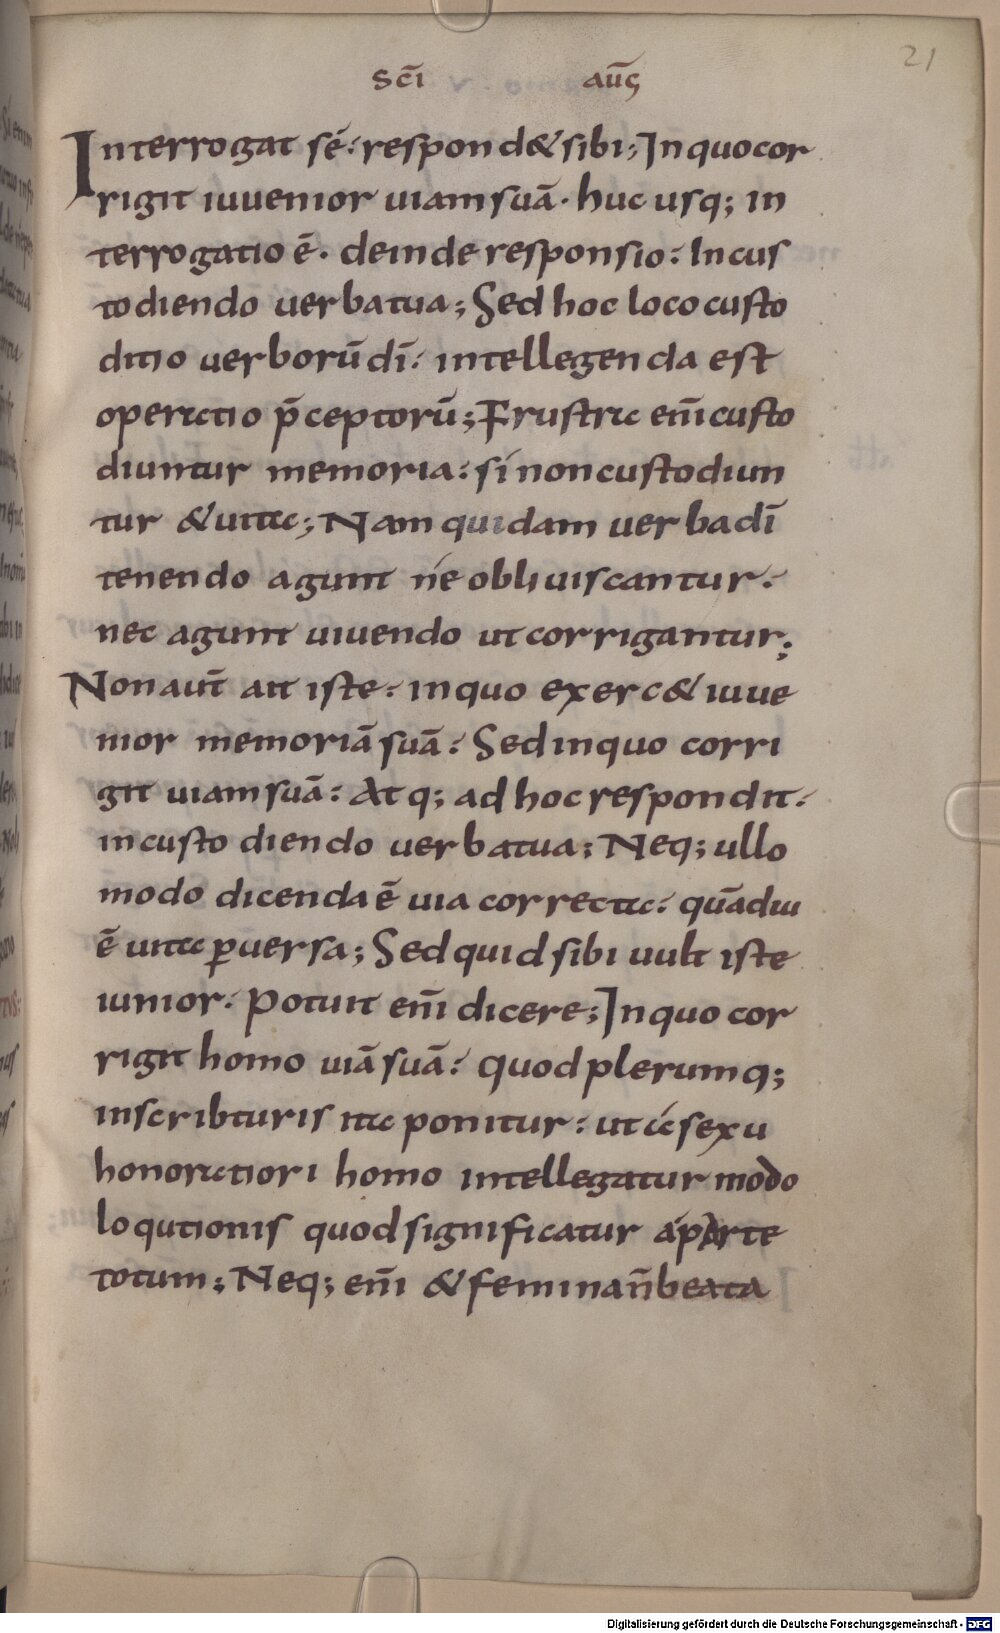 21
sc̄i aūg
Interrogat sē: respond& sibi; In quo cor
rigit iuuenior uiam suā. huc usq; in
terrogatio ē. deinde responsio: In cus
todiendo uerba tua; Sed hoc loco custo
ditio uerborū dī: intellegenda est
operatio p̄ceptorū; Frustra en̄i custo
diuntur memoria: si non custodiun
tur & uita; Nam quidam uerba dī
tenendo agunt ne obliuiscantur:
nec agunt uiuendo ut corrigantur;
Non aut̄ ait iste: in quo exerc& iuue
nior memoriā suā: Sed in quo corri
git uiam suā: Atq; ad hoc respondit:
in custodiendo uerba tua; Neq; ullo
modo dicenda ē uia correcta: quādiu
ē uita ꝑuersa; Sed quid sibi uult iste
iunior. Potuit en̄i dicere; In quo cor
rigit homo uiā suā: quod plerumq;
in scribturis ita ponitur: ut a sexu
honoratiori homo intellegatur modo
loqutionis quod significatur a parte
totum; Neq; en̄i & femina n̄ beata
Digitalisierung gefördert durch die Deutsche Forschungsgemeinschaft - DFG